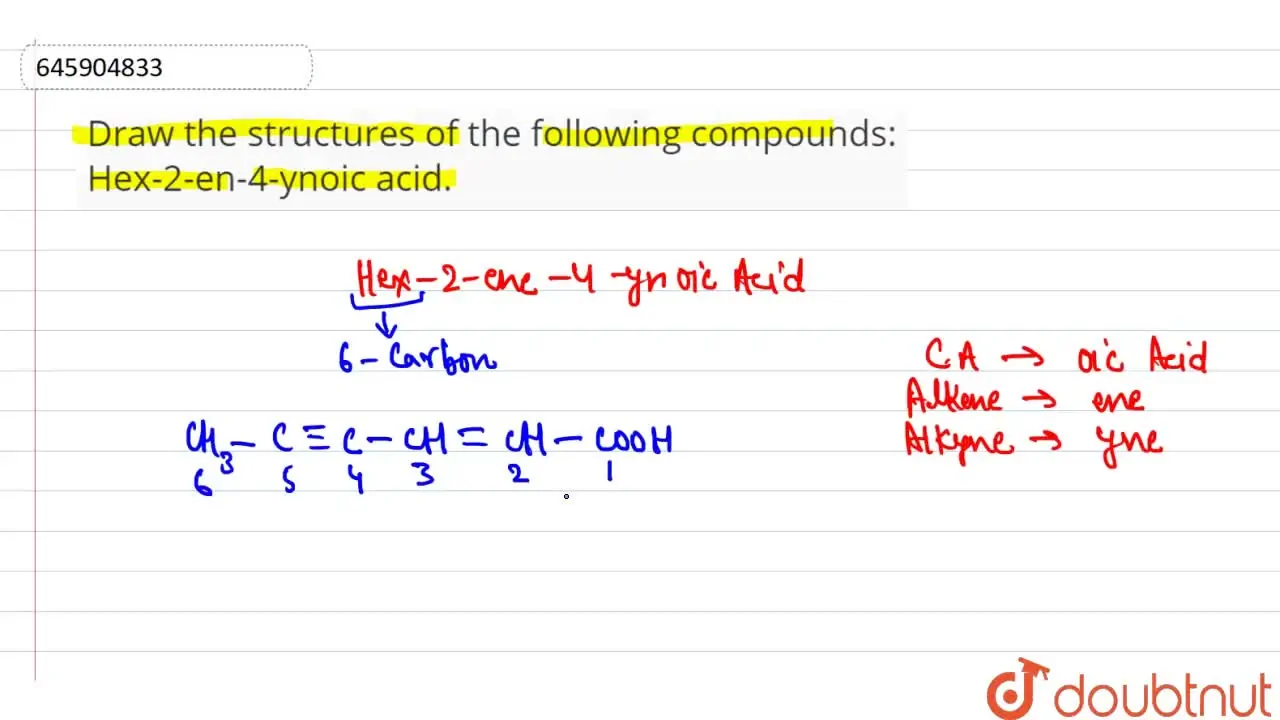 645904833
Draw the structures of the following compounds:
Hex-2-en-4-ynoic acid.
Hex-2-ene-4-ynoic Acid
6-Carbon
CA → oic Acid
Alkene → ene
Alkyne → yne
CH3-C≡C-CH=CH-COOH
6 5 4 3 2 1
doubtnut